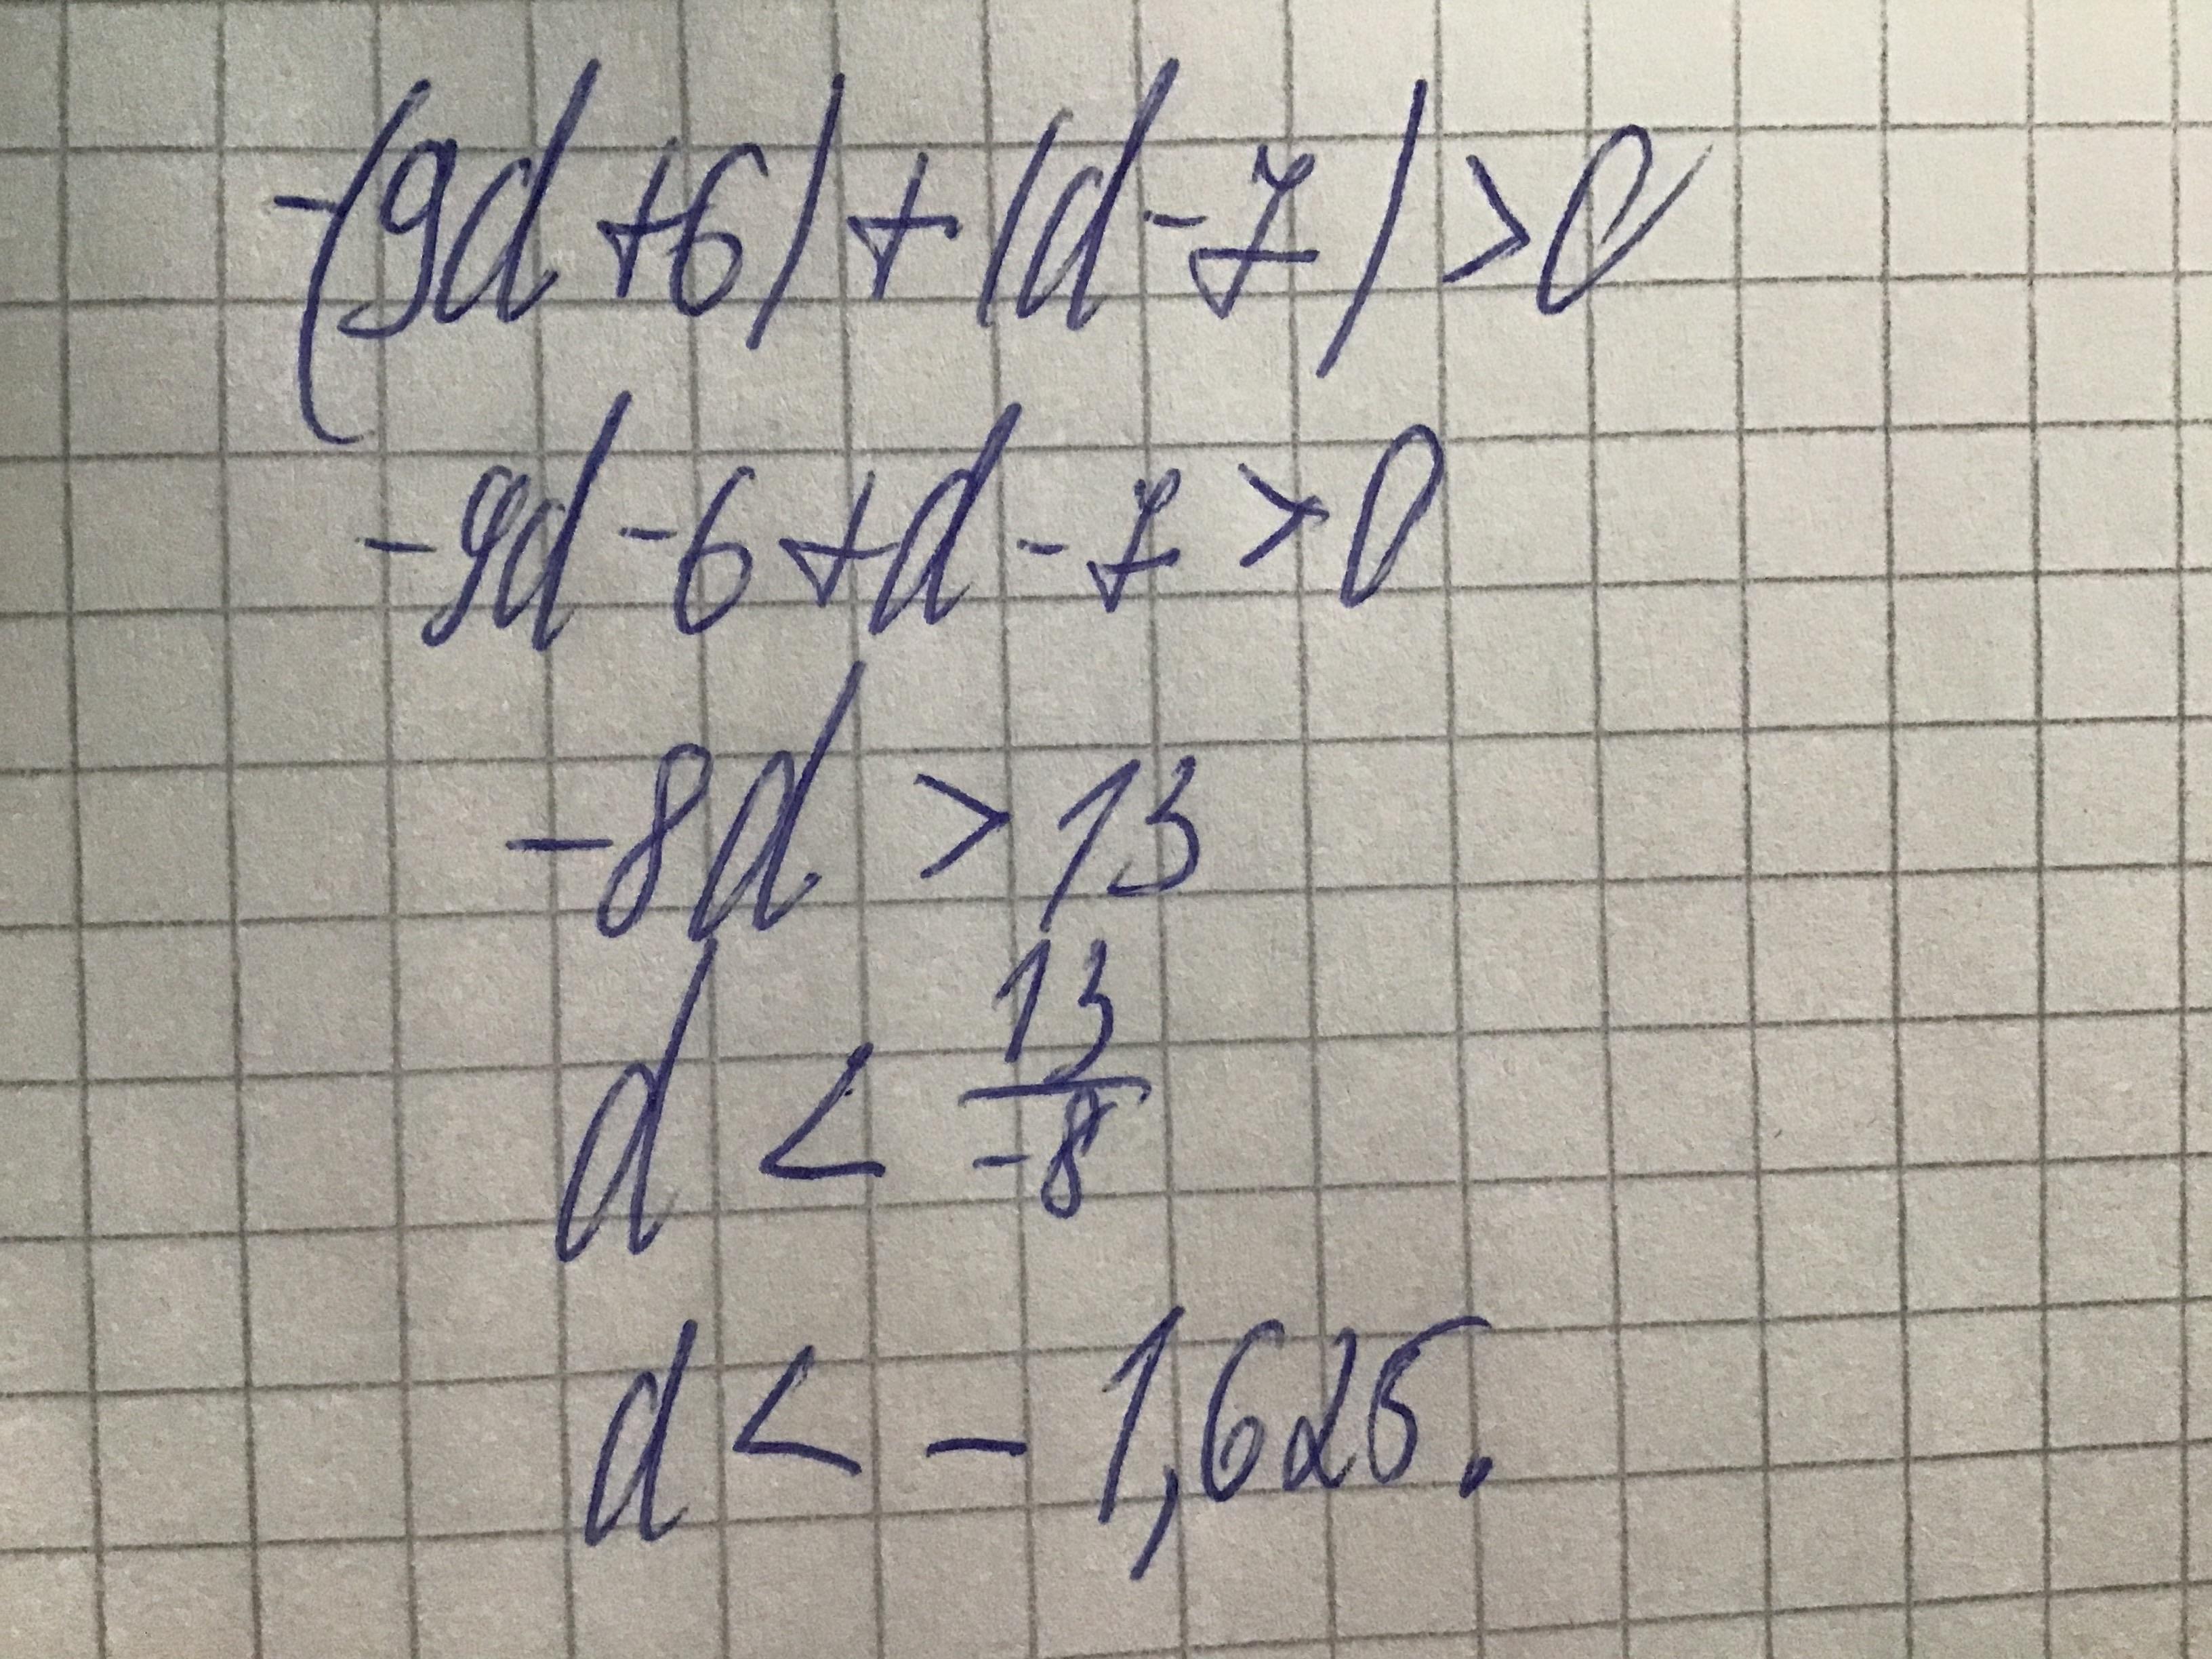 -(9d+6)+(d-7)>0
-9d-6+d-7>0
-8d>13
d<13/-8
d<-1,625.